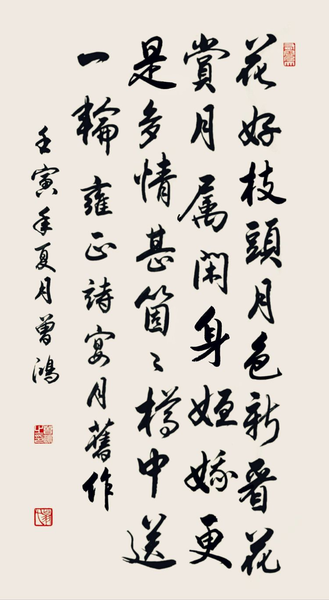 花好枝頭月色新看花
賞月属閑身姮娥更
是多情甚箇〻樽中送
一輪雍正詩宴月舊作
壬寅年夏月曾鴻